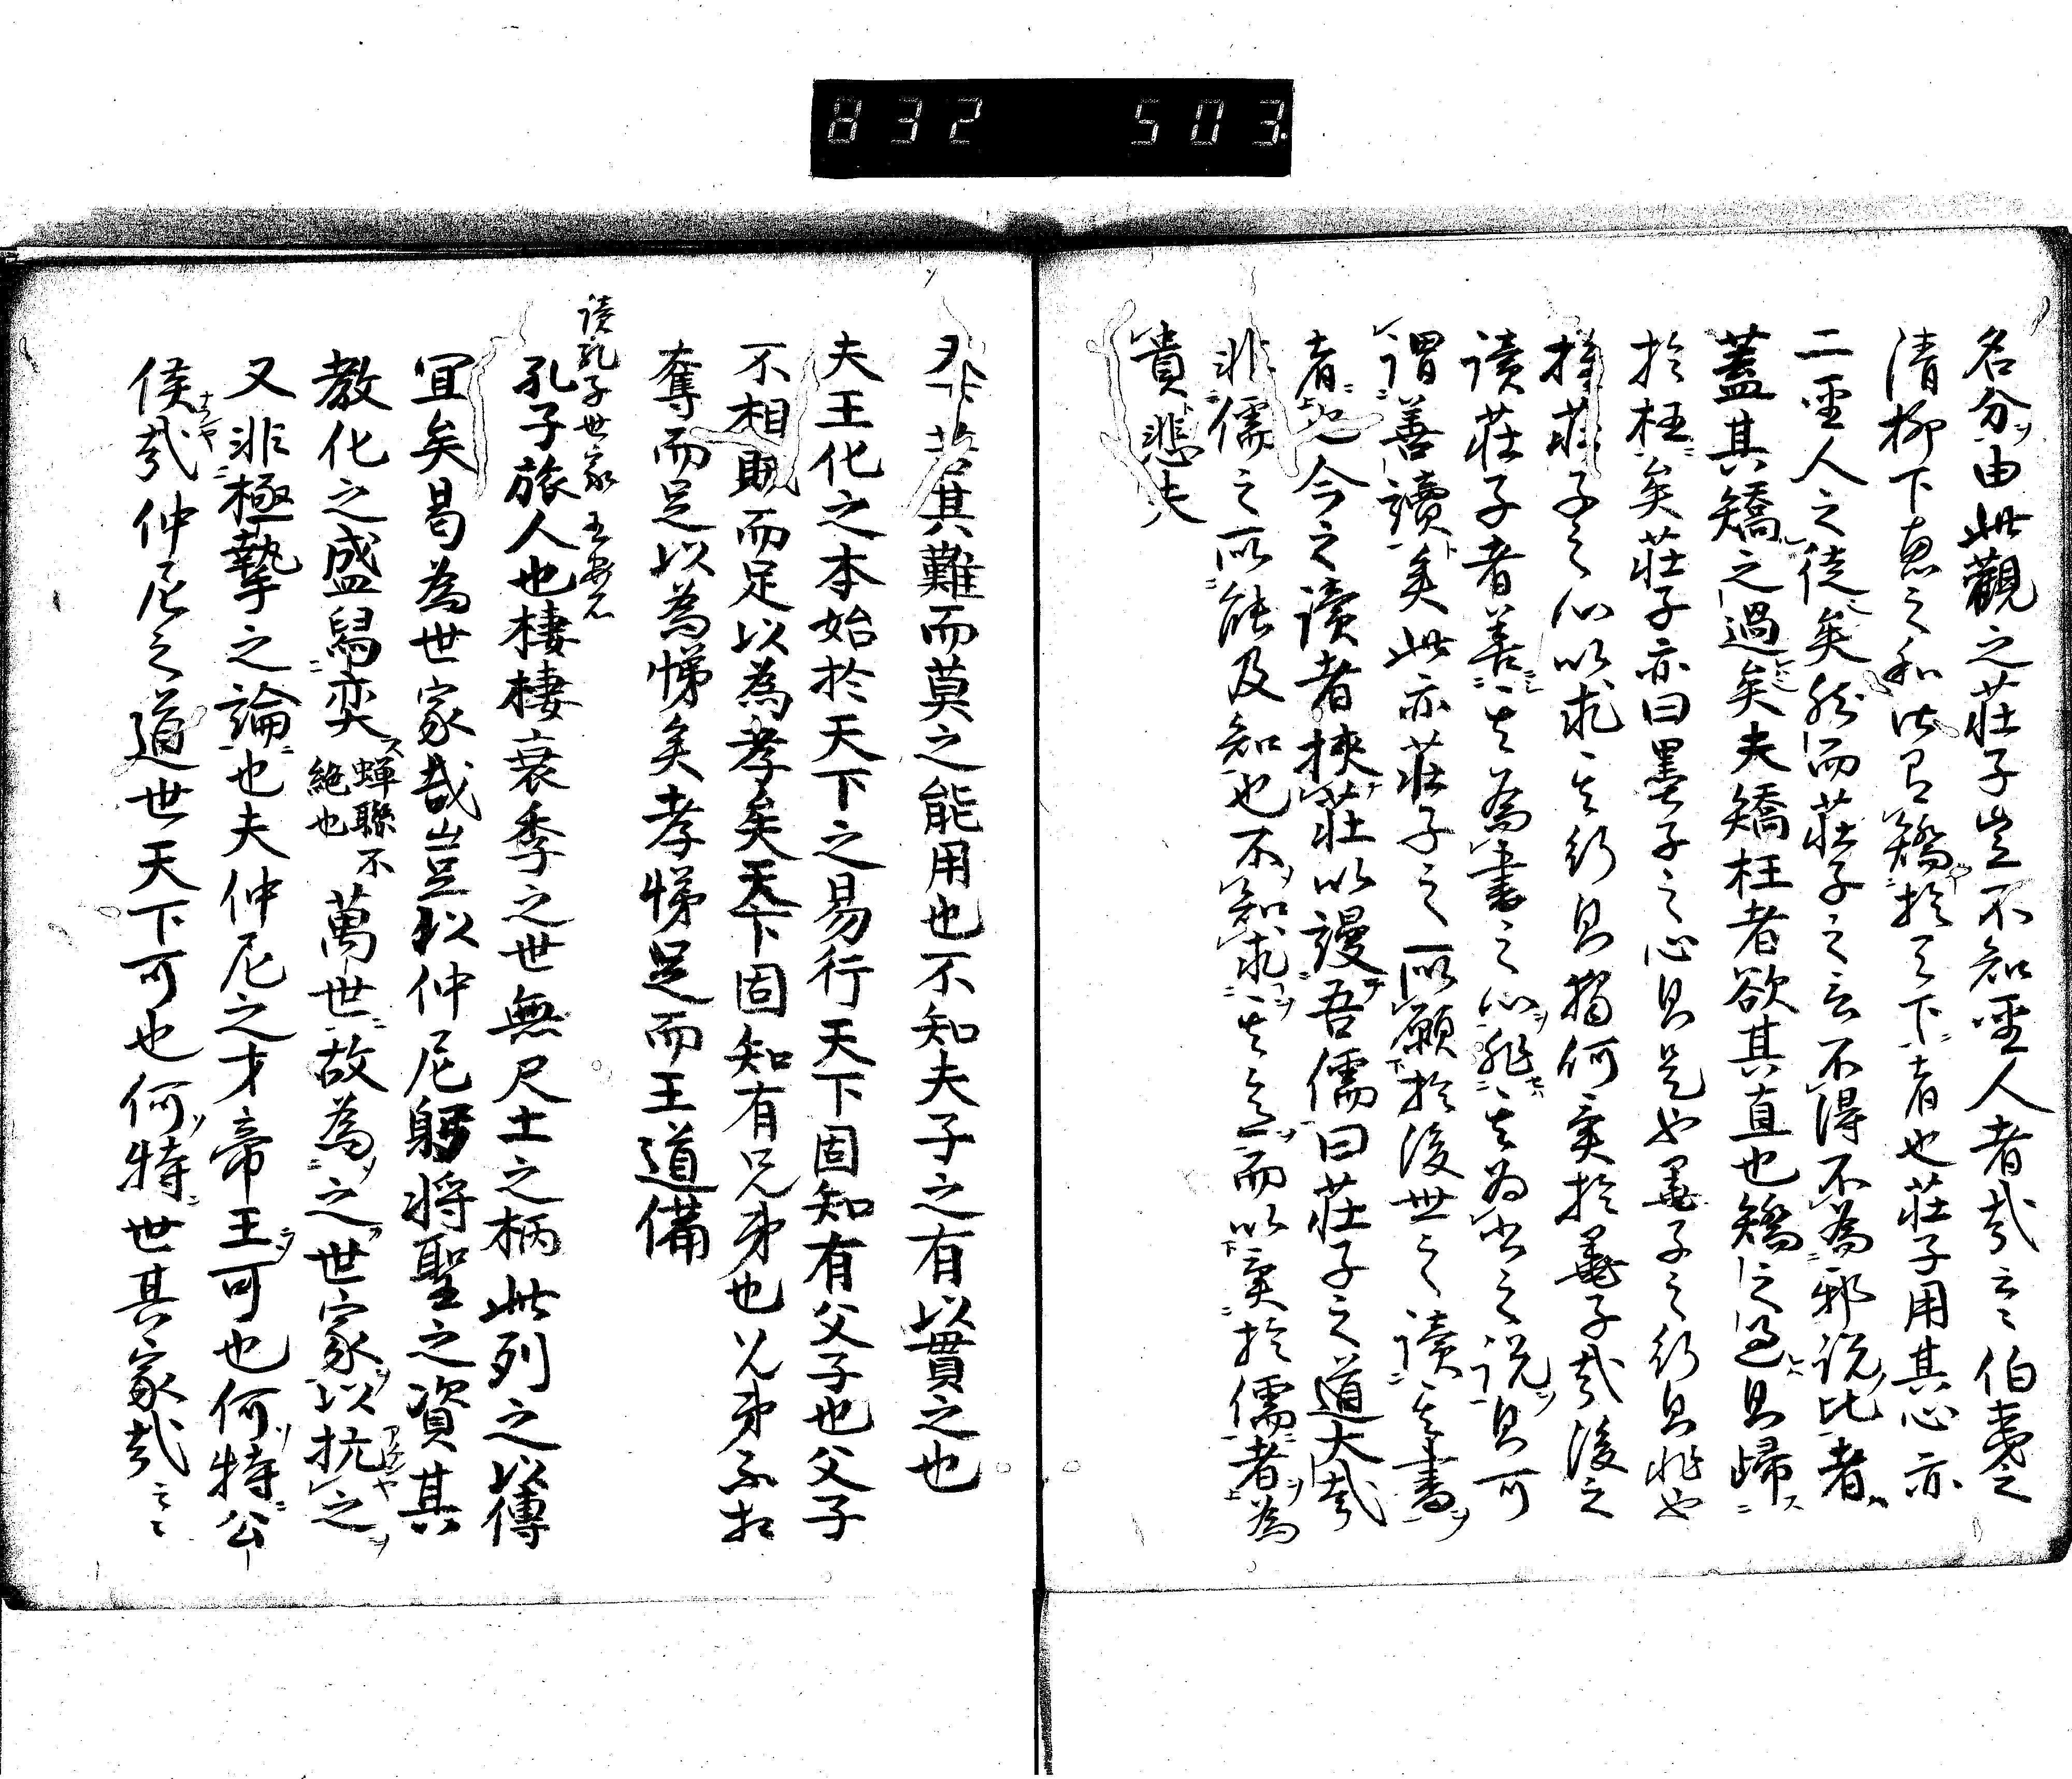 832 503
名分由此觀之莊子豈不知聖人者哉云云伯夷之
清柳下恵之和皆有矯於天下者也莊子用其心亦
二聖人之徒矣然而莊子之言不得不為邪說比者
蓋其矯之過矣夫矯枉者欲其直也矯之過則歸
於枉矣莊子亦曰墨子之心則是也墨子之行則非也
推莊子之心以求其行則獨何異於墨子哉後之
讀莊子者善其為書之心非其為書之說則可
謂善讀矣此亦莊子之所願於後世之讀其書
者也今之讀者挾莊以謾吾儒曰莊子之道大哉
非儒之所能及知也不知求其意而以異於儒者為
貴悲夫
若其難而莫之能用也不知夫子之有以貫之也
夫王化之本始於天下之易行天下固知有父子也父子
不相賊而足以為孝矣天下固知有兄弟也兄弟不相
奪而足以為悌矣孝悌足而王道備
讀孔子世家 王安石
孔子旅人也棲棲衰季之世無尺土之柄此列之以傳
宜矣曷為世家哉豈以仲尼躬將聖之資其
教化之盛舄奕蟬聯不絶也萬世故為之世家以抗之
又非極摯之論也夫仲尼之才帝王可也何特公
侯哉仲尼之道世天下可也何特世其家哉云云